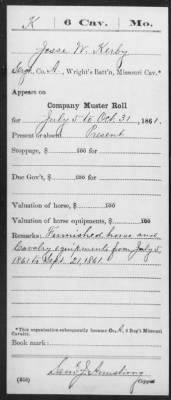 K | 6 Cav. | Mo.
Jesse W. Kerby
Serg., Co. A, Wright's Batt'n, Missouri Cav.*
Appears on
Company Muster Roll
for July 5 to Oct. 31, 1861.
Present or absent Present
Stoppage, $ 100 for
Due Gov't, $ 100 for
Valuation of horse, $ 100
Valuation of horse equipments, $ 100
Remarks: Furnished horse and
Cavalry equipments from July 5,
1861 to Sept. 21, 1861.
*This organization subsequently became Co. A, 6 Reg't Missouri
Cavalry.
Book mark:
J. Armstrong
(858) Copyist.